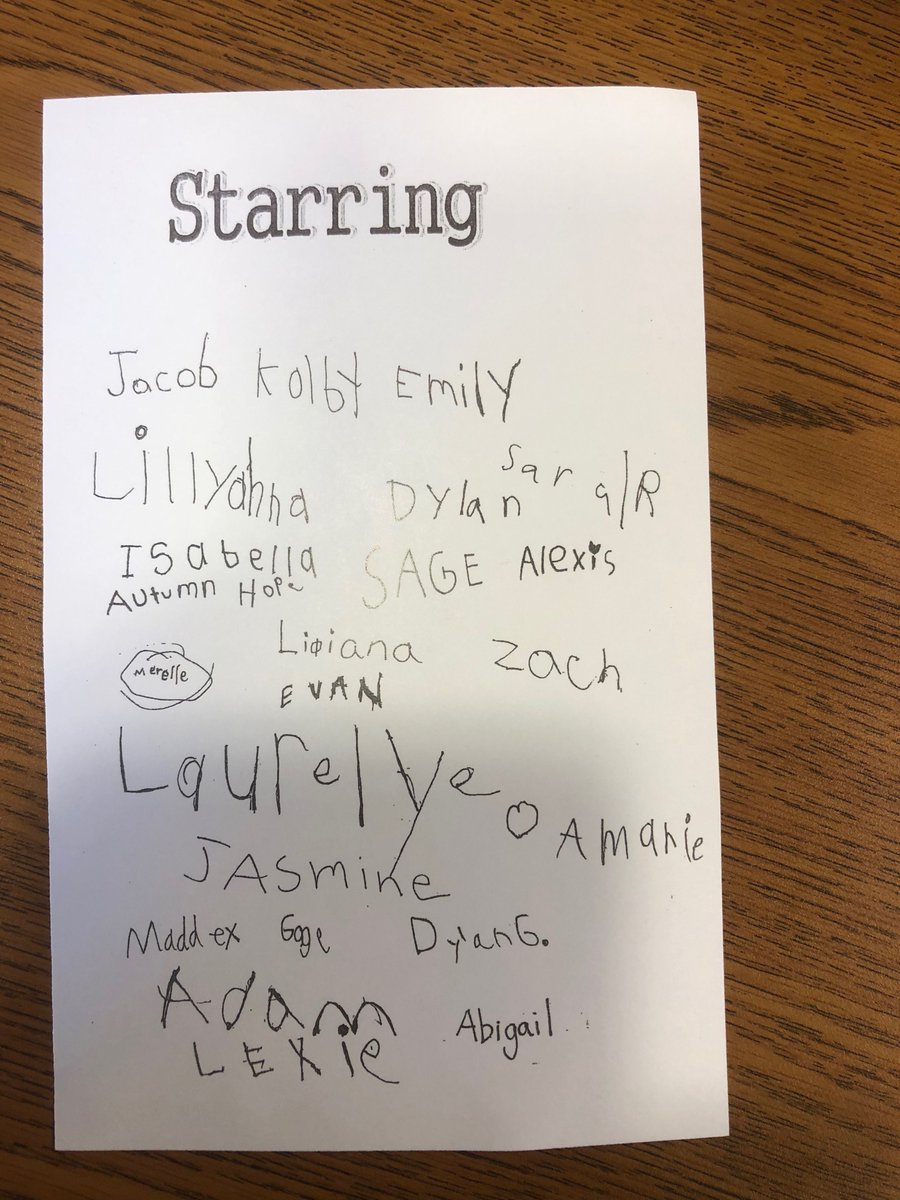 Starring
Jacob Kolby Emily
Lillyahna Dylan Sar a/R
Isabella SAGE Alexis
Autumn Hope
Merelle Liliana Zach
EVAN
Laurelye
Amarie
JAsmine
Maddex Gage DylanG.
Adam Abigail
LEXie